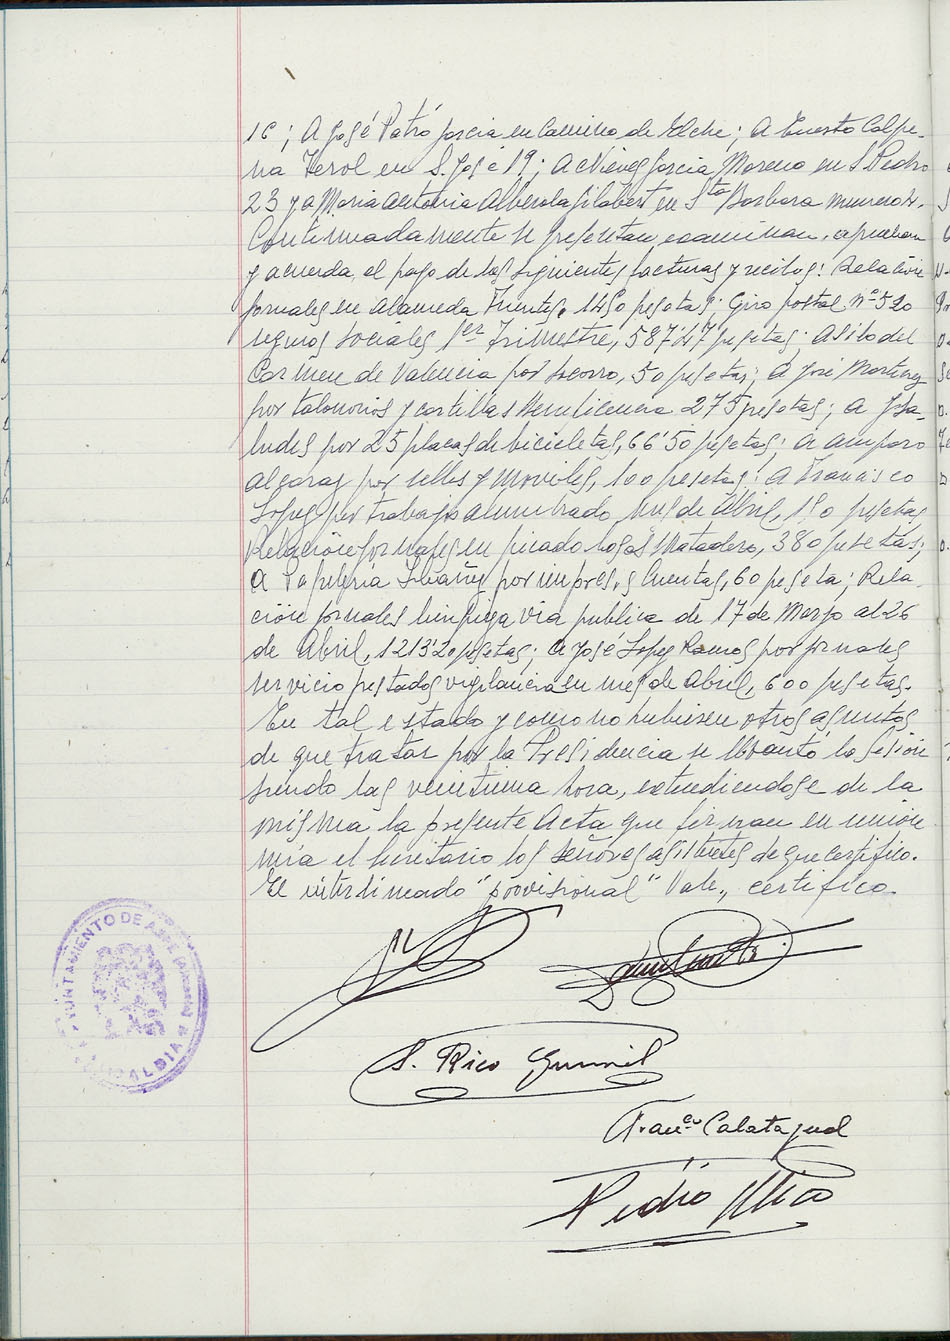 16; A José Patró García en Camino de Elche; A Ernesto Calpe-
na Terol en S. José 19; A Nieves García Moreno en S. Pedro
23 y a Maria Antonia Alberola Gilabert en Sta Barbara numero 4.
Continuadamente se presentan, examinan, aprueban
y acuerda, el pago de los siguientes facturas y recibos: Relación
jornales en Alameda Fuentes, 1450 pesetas; Giro postal nº 520
seguros sociales 1er Trimestre, 587'47 pesetas; Asilo del
Carmen de Valencia por socorro, 50 pesetas; a José Martinez
por talonarios y cartillas Beneficencia 275 pesetas; a
por 25 placas de bicicletas, 66'50 pesetas; a Amparo
Alcaraz por sellos y moviles, 100 pesetas; a Francisco
Lopez por trabajos alumbrado mes de Abril, 150 pesetas
Relación jornales en picado losas Matadero, 380 pesetas;
a Papeleria Ibañez por impresos Cuentas, 60 peseta; Rela-
ción jornales limpieza via publica de 17 de Marzo al 26
de Abril, 1213'20 pesetas; a José Lopez Ramos por jornales
servicio prestados vigilancia en mes de Abril, 600 pesetas.
En tal estado y como no hubiesen otros asuntos
de que tratar por la Presidencia se levantó la sesión
siendo las veintiuna hora, extendiendose de la
misma la presente Acta que firman en union
mia el Secretario los señores asistentes de que certifico.
El interlineado "provisional" Vale, certifico.
AYUNTAMIENTO DE ASPE (Alicante)
ALCALDIA
S. Rico
Franco Calatayud
Pedro Rico